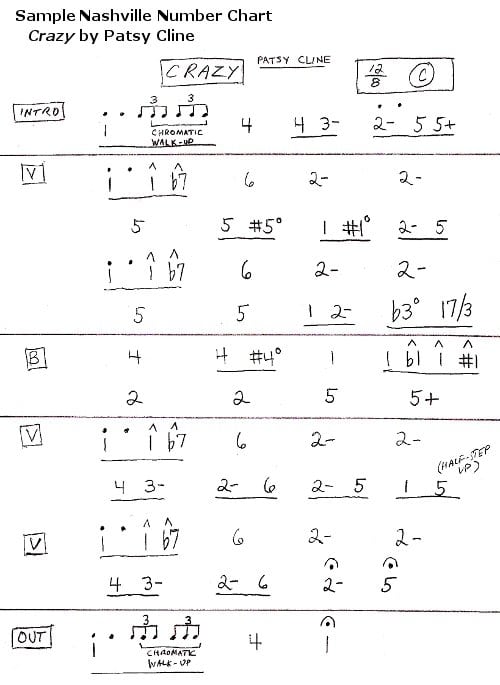 Sample Nashville Number Chart
Crazy by Patsy Cline
CRAZY PATSY CLINE 12/8 C
INTRO 1 3 3 4 4 3- 2- 5 5+
CHROMATIC
WALK-UP
V 1 1 b7 6 2- 2-
5 5 #5° 1 #1° 2- 5
1 1 b7 6 2- 2-
5 5 1 2- b3° 17/3
B 4 4 #4° 1 1 b1 1 #1
2 2 5 5+
V 1 1 b7 6 2- 2-
(HALF-STEP
UP)
4 3- 2- 6 2- 5 1 5
V 1 1 b7 6 2- 2-
4 3- 2- 6 2- 5
OUT 1 3 3 4 1
CHROMATIC
WALK-UP